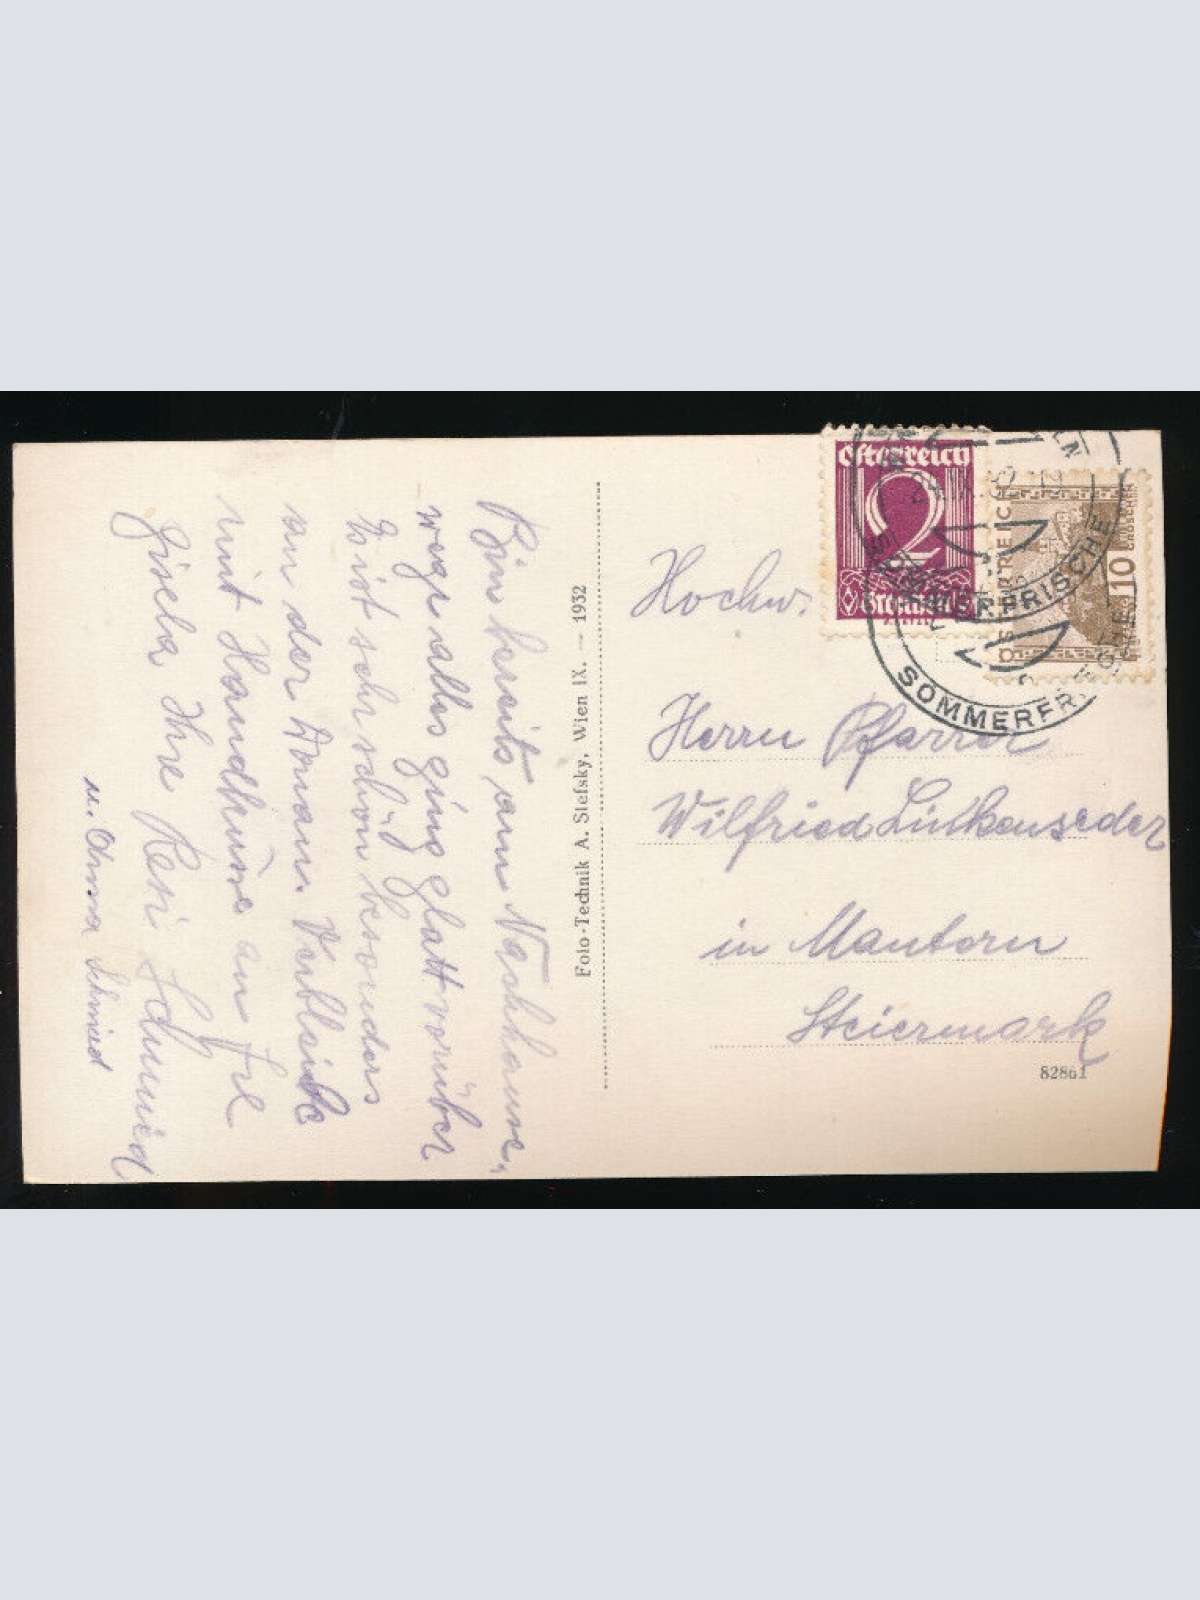 Bin bereits am Nachhause-
wege alles ging glatt vorüber
Es ist sehr schön besonders
an der Donau. Verbleibe
mit Handküsse an Frl
Gisela Ihre Resi Schmied
u. Anna Schmied
Foto-Technik A. Stefsky, Wien IX. — 1932
Österreich
2
Groschen
ÖSTERREICH
10
GROSCHEN
SOMMERFRISCHE
SOMMERFR
Hochw.
Herrn Pfarrer
Wilfried Lückenseder
in Mautern
Steiermark
82861